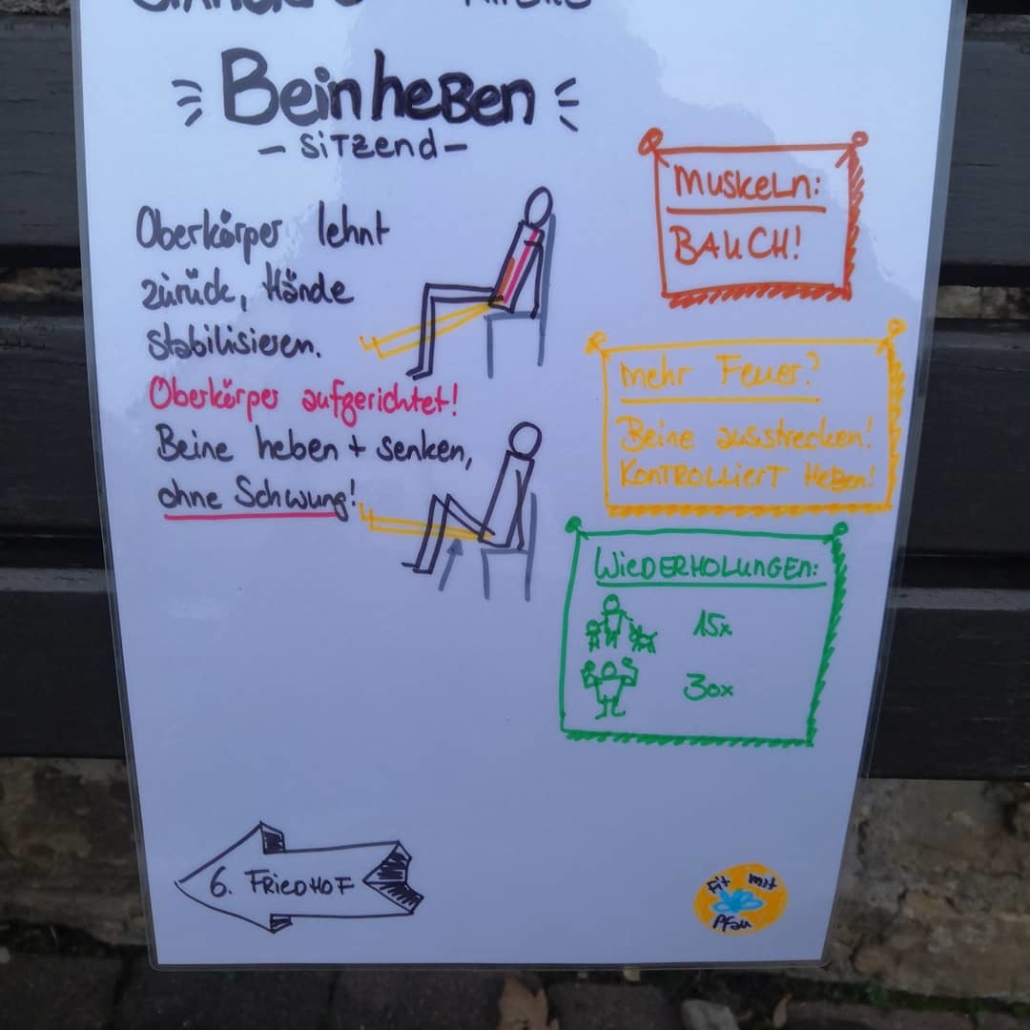 Beinheben
- sitzend -
Oberkörper lehnt
zurück, Hände
stabilisieren.
Oberkörper aufgerichtet!
Beine heben + senken,
ohne Schwung!
Muskeln:
BAUCH!
mehr Feuer?
Beine ausstrecken!
KONTROLLIERT HeBen!
WieDERHOLUNGEN:
15x
30x
6. FRIEDHOF
Fit mit
Pfau